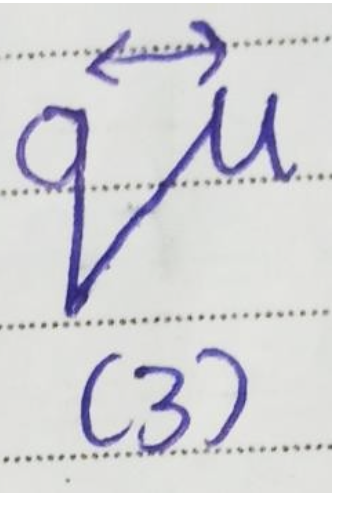 qu
(3)